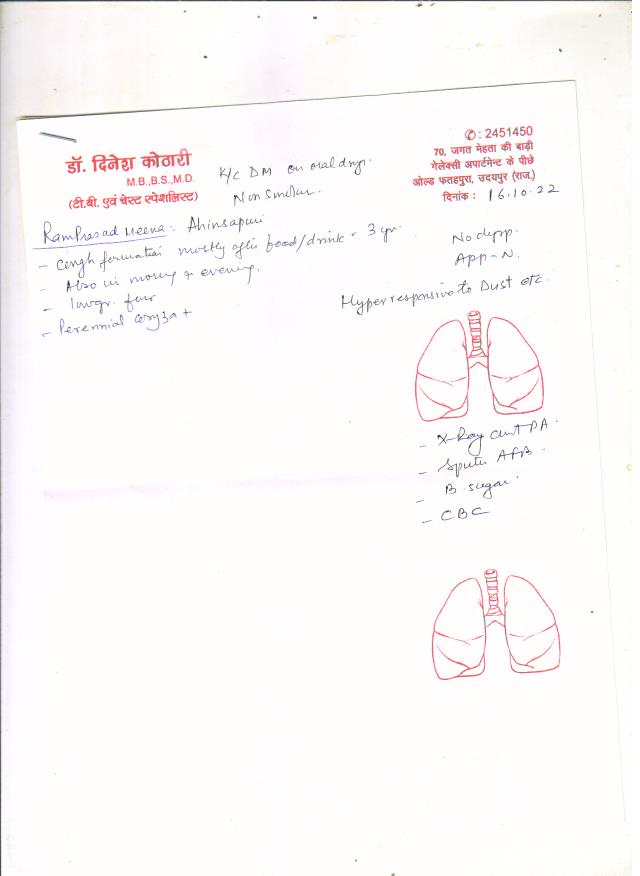 डॉ. दिनेश कोठारी
M.B.,B.S.,M.D.
(टी.बी. एवं चेस्ट स्पेशलिस्ट)
K/c DM on oral drugs.
Non Smoker.
✆: 2451450
70, जगत मेहता की बाड़ी
गेलेक्सी अपार्टमेन्ट के पीछे
ओल्ड फतहपुरा, उदयपुर (राज.)
दिनांक : 16.10.22
RamPrasad Meena : Ahinsapuri
- formation mostly after food/drink - 3 yr.
- Also in morning & evening.
- lowgr. fever
- Perennial coryza +
No dysp.
App-N.
Hyperresponsive to Dust etc.
- X-Ray chest PA.
- Sputum AFB.
- B. sugar.
- CBC